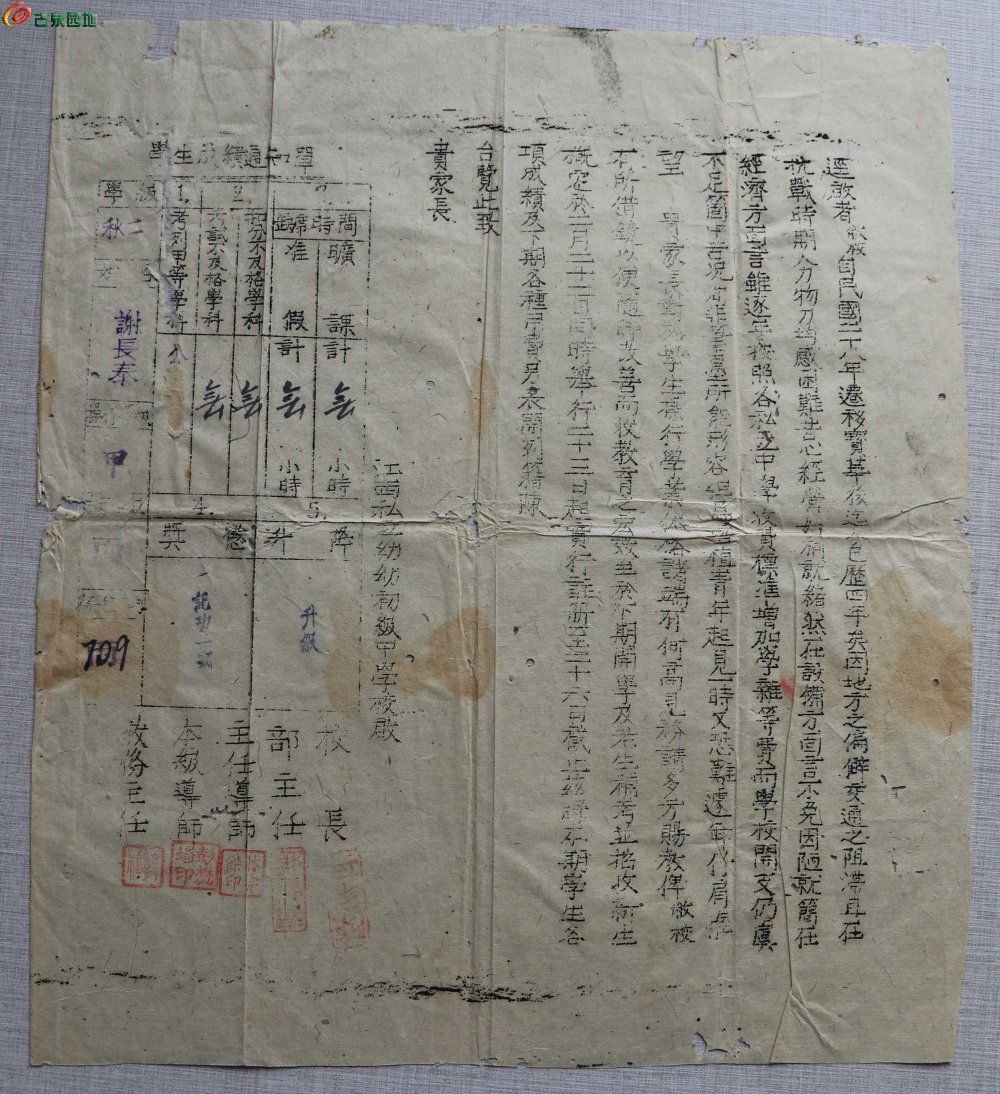 古泉园地
逕啟者敝校自民國二十八年遷移寶華後迄今已歷四年矣因地方之偏僻交通之阻滯且在
抗戰時期人力物力均感困難苦心經營始稍就緒然在設備方面言不免因陋就簡在
經濟方面言雖逐年按照各私立中學收費標准增加學雜等費而學校開支仍虞
不足箇中苦況 非筆墨所能形容但為培植青年起見一時又恐難遽卸仔肩
望 貴家長對 學生操行學業 諸端有何高見務請多方賜教俾敝校
有所借鏡以便隨時改善而收教育之宏效至於下期開學及考生補考並招收新生
概定於二月二十二日同時舉行二十三日起實行註册至二十六日截止茲將本期學生各
項成績及下期各種用費另表開列籍陳
台覽此致
貴家長
江西私立幼幼初級中學校啟
學生成績通知單
學級 秋二
姓名 謝長泰
甲
丙
7019
1. 考列甲等學科 公
2. 考試不及格學科 無
扣分不及格學科 無
缺席時間
准假計 無 小時
曠課計 無 小時
4. 獎懲 記功一次
5. 升降 升級
校長
部主任
主任導師
本級導師
教務主任